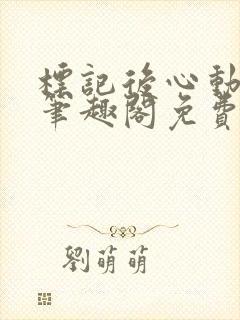 標記後心動
筆趣閣免費
劉萌萌